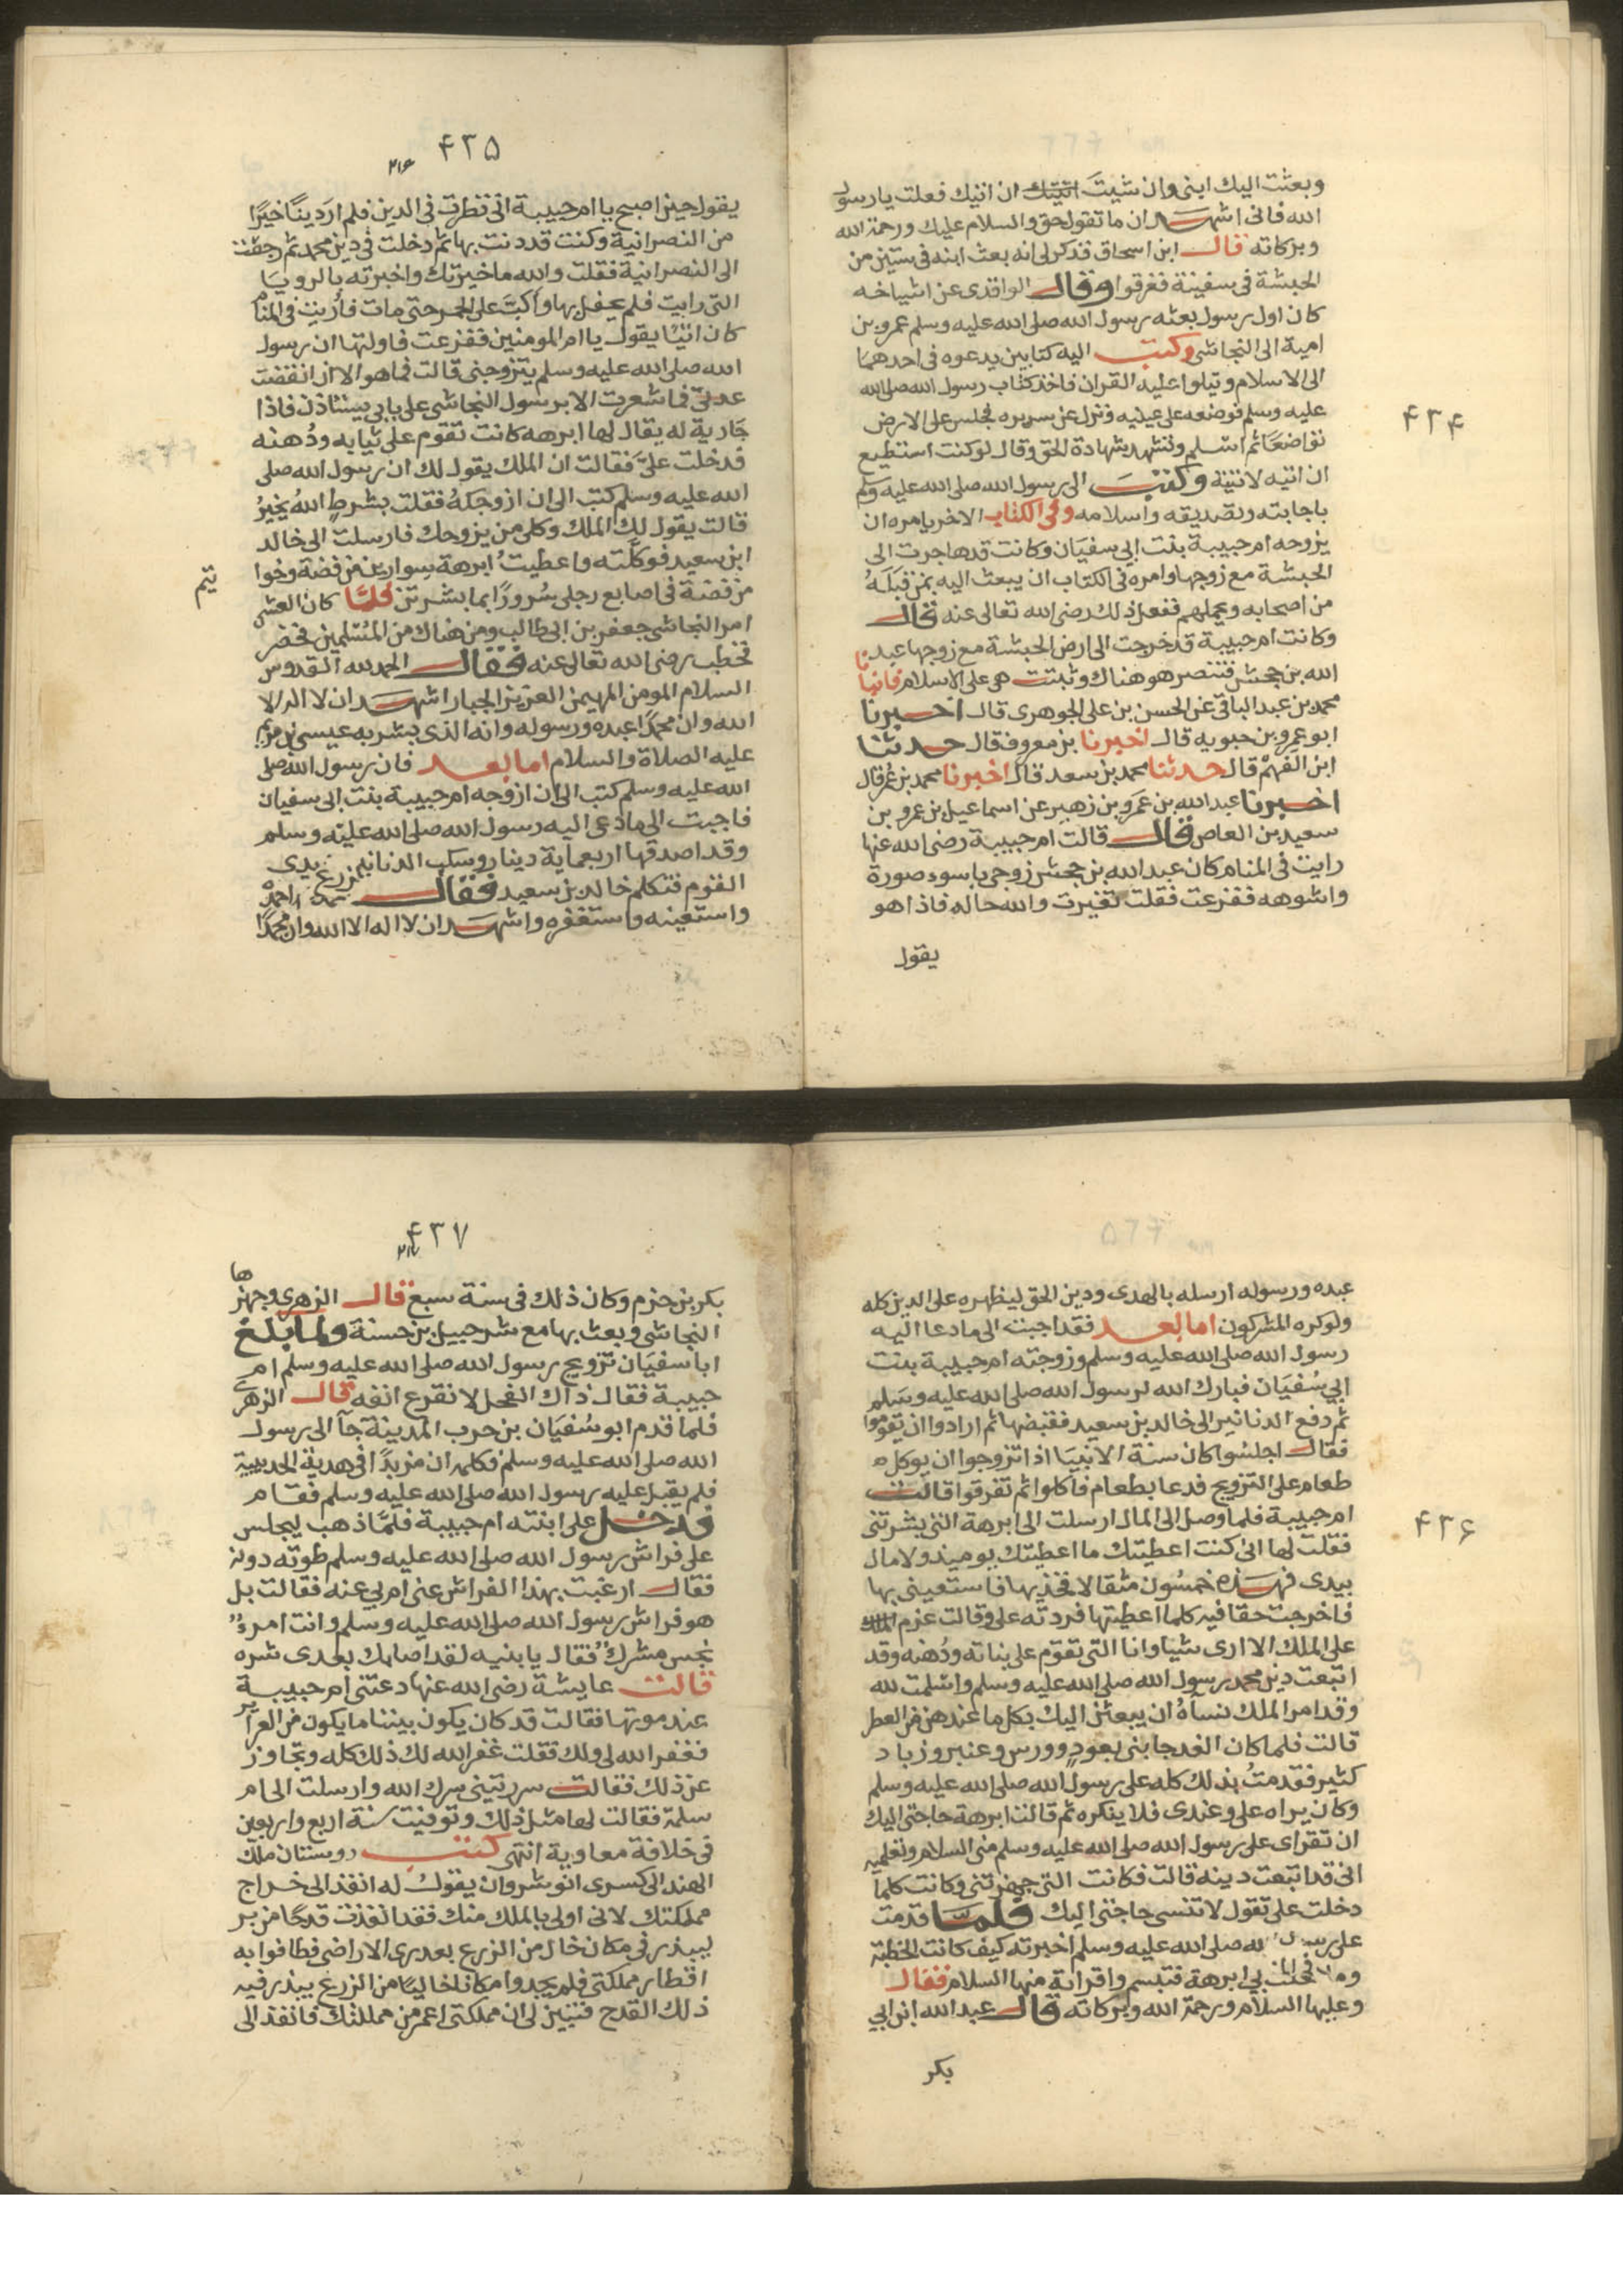 ۴۳۴
وبعثت اليك ابنى وان شيت اتيتك ان اتيك فعلت يارسول
الله فانى اشهد ان ما تقول حق والسلام عليك ورحمة الله
وبركاته قال ابن اسحاق فذكر لى انه بعث ابنه فى ستين من
الحبشة فى سفينة فغرقوا وقال الواقدى عن اشياخه
كان اول رسول بعثه رسول الله صلى الله عليه وسلم عمرو بن
امية الى النجاشى وكتب اليه كتابين يدعوه فى احدهما
الى الاسلام ويتلوا عليه القران فاخذ كتاب رسول الله صلى الله
عليه وسلم فوضعه على عينيه ونزل عن سريره فجلس على الارض
تواضعا ثم اسلم وتشهد بشهادة الحق وقال لو كنت استطيع
ان اتيه لاتيته وكتب الى رسول الله صلى الله عليه وسلم
باجابته وتصديقه واسلامه وفى الكتاب الاخر يامره ان
يزوجه ام حبيبة بنت ابي سفيان وكانت قد هاجرت الى
الحبشة مع زوجها وامره فى الكتاب ان يبعث اليه بمن قبله
من اصحابه ويحملهم ففعل ذلك رضى الله تعالى عنه قال
وكانت ام حبيبة قد خرجت الى ارض الحبشة مع زوجها عبد
الله بن جحش فتنصر هو هناك وثبتت هى على الاسلام فانبانا
محمد بن عبد الباقى عن الحسن بن على الجوهرى قال اخبرنا
ابو عمرو بن حبويه قال اخبرنا بن معروف قال حدثنا
ابن الفهم قال حدثنا محمد بن سعد قال اخبرنا محمد بن عمر قال
اخبرنا عبد الله بن عمرو بن زهير عن اسماعيل بن عمرو بن
سعيد بن العاص قال قالت ام حبيبة رضى الله عنها
رايت فى المنام كان عبد الله بن جحش زوجى باسوء صورة
واشوهه ففزعت فقلت تغيرت والله حاله فاذا هو
يقول
۴۳۵
۲۱۶
يقول حين اصبح يا ام حبيبة انى نظرت فى الدين فلم ار دينا خيرا
من النصرانية وكنت قد دنت بها ثم دخلت فى دين محمد ثم رجعت
الى النصرانية فقلت والله ما خيرتك واخبرته بالرويا
التى رايت فلم يحفل بها واكبت على الخمر حتى مات فأريت فى المنام
كان اتيا يقول يا ام المومنين ففزعت فاولتها ان رسول
الله صلى الله عليه وسلم يتزوجنى قالت فما هو الا ان انقضت
عدتى فما شعرت الا برسول النجاشى على بابى يستاذن فاذا
جارية له يقال لها ابرهه كانت تقوم على ثيابه ودهنه
فدخلت علي فقالت ان الملك يقول لك ان رسول الله صلى
الله عليه وسلم كتب الى ان ازوجكه فقلت بشرط الله بخير
قالت يقول لك الملك وكلى من يزوجك فارسلت الى خالد
ابن سعيد فوكلته واعطيت ابرهة سوارين من فضة وخواتيم
من فضة فى اصابع رجلى سرورا بما بشرتنى فلما كان العشى
امر النجاشى جعفر بن ابى طالب ومن هناك من المسلمين فحضر
فخطب رضى الله تعالى عنه فقال الحمد لله القدوس
السلام المومن المهيمن العزيز الجبار اشهد ان لا اله الا
الله وان محمدا عبده ورسوله وانه الذى بشر به عيسى بن مريم
عليه الصلاة والسلام اما بعد فان رسول الله صلى
الله عليه وسلم كتب الى ان ازوجه ام حبيبة بنت ابى سفيان
فاجبت الى ما دعى اليه رسول الله صلى الله عليه وسلم
وقد اصدقها اربعماية دينار وسكب الدنانير بين يدى
القوم فتكلم خالد بن سعيد فقال احمده
واستعينه واستغفره واشهد ان لا اله الا الله وان محمدا
۴۳۶
عبده ورسوله ارسله بالهدى ودين الحق ليظهره على الدين كله
ولو كره المشركون اما بعد فقد اجبت الى ما دعا اليه
رسول الله صلى الله عليه وسلم وزوجته ام حبيبة بنت
ابي سفيان فبارك الله لرسول الله صلى الله عليه وسلم
ثم دفع الدنانير الى خالد بن سعيد فقبضها ثم ارادوا ان يقوموا
فقال اجلسوا كان سنة الانبيا اذا تزوجوا ان يوكل
طعام على التزويج فدعا بطعام فاكلوا ثم تفرقوا قالت
ام حبيبة فلما وصل الى المال ارسلت الى ابرهة التى بشرتنى
فقلت لها انى كنت اعطيتك ما اعطيتك يوميذ ولا مال
بيدى فهذه خمسون مثقالا فخذيها فاستعينى بها
فاخرجت حقا فيه كلما اعطيتها فردته على وقالت عزم
على الملك الا ارى شيا وانا التى تقوم على بناته ودهنه وقد
اتبعت دين محمد رسول الله صلى الله عليه وسلم واسلمت لله
وقد امر الملك نساه ان يبعثن اليك بكل ما عندهن من العطر
قالت فلما كان الغد جاتنى بعود وورس وعنبر وزباد
كثير فقدمت بذلك كله على رسول الله صلى الله عليه وسلم
وكان يراه على وعندى فلا ينكره ثم قالت ابرهة حاجتى اليك
ان تقراى على رسول الله صلى الله عليه وسلم منى السلام وتعلميه
انى قد اتبعت دينه قالت فكانت التى جهزتنى وكانت كلما
دخلت على تقول لا تنسى حاجتى اليك فلما قدمت
على رسول الله صلى الله عليه وسلم اخبرته كيف كانت الخطبة
وما فعلت بي ابرهة فتبسم واقراته منها السلام فقال
وعليها السلام ورحمة الله وبركاته قال عبد الله ابن ابي
بكر
۴۳۷
۲۱۷
بكر بن حزم وكان ذلك فى سنة سبع قال الزهرى وجهزها
النجاشى وبعث بها مع شرحبيل بن حسنة ولما بلغ
ابا سفيان تزويج رسول الله صلى الله عليه وسلم ام
حبيبة فقال ذاك الفحل لا تقرع انفه قال الزهرى
فلما قدم ابو سفيان بن حرب المدينة جآ الى رسول
الله صلى الله عليه وسلم فكلمه ان مزيدا فى هدية الحديبية
فلم يقبل عليه رسول الله صلى الله عليه وسلم فقام
فدخل على ابنته ام حبيبة فلما ذهب ليجلس
على فراش رسول الله صلى الله عليه وسلم طوته دونه
فقال ارغبت بهذا الفراش عنى ام بي عنه فقالت بل
هو فراش رسول الله صلى الله عليه وسلم وانت امرء
نجس مشرك فقال يا بنيه لقد اصابك بعدى شره
قالت عايشة رضى الله عنها دعتنى ام حبيبة
عند موتها فقالت قد كان يكون بيننا ما يكون من الضراير
فغفر الله لى ولك فقلت غفر الله لك ذلك كله وتجاوز
عن ذلك فقالت سررتينى سرك الله وارسلت الى ام
سلمة فقالت لها مثل ذلك وتوفيت سنة اربع واربعين
فى خلافة معاوية انتهى كتب دوبستان ملك
الهند الى كسرى انوشروان يقول له انفذ الى خراج
مملكتك لانى اولى بالملك منك فقد انفذت قدحا من بر
ليبذر فى مكان خال من الزرع بعد رى الاراضى فطافوا به
اقطار مملكتى فلم يجدوا مكانا خاليا من الزرع يبذر فيه
ذلك القدح فتبين لى ان مملكتى اعمر من مملكتك فانفذ الى